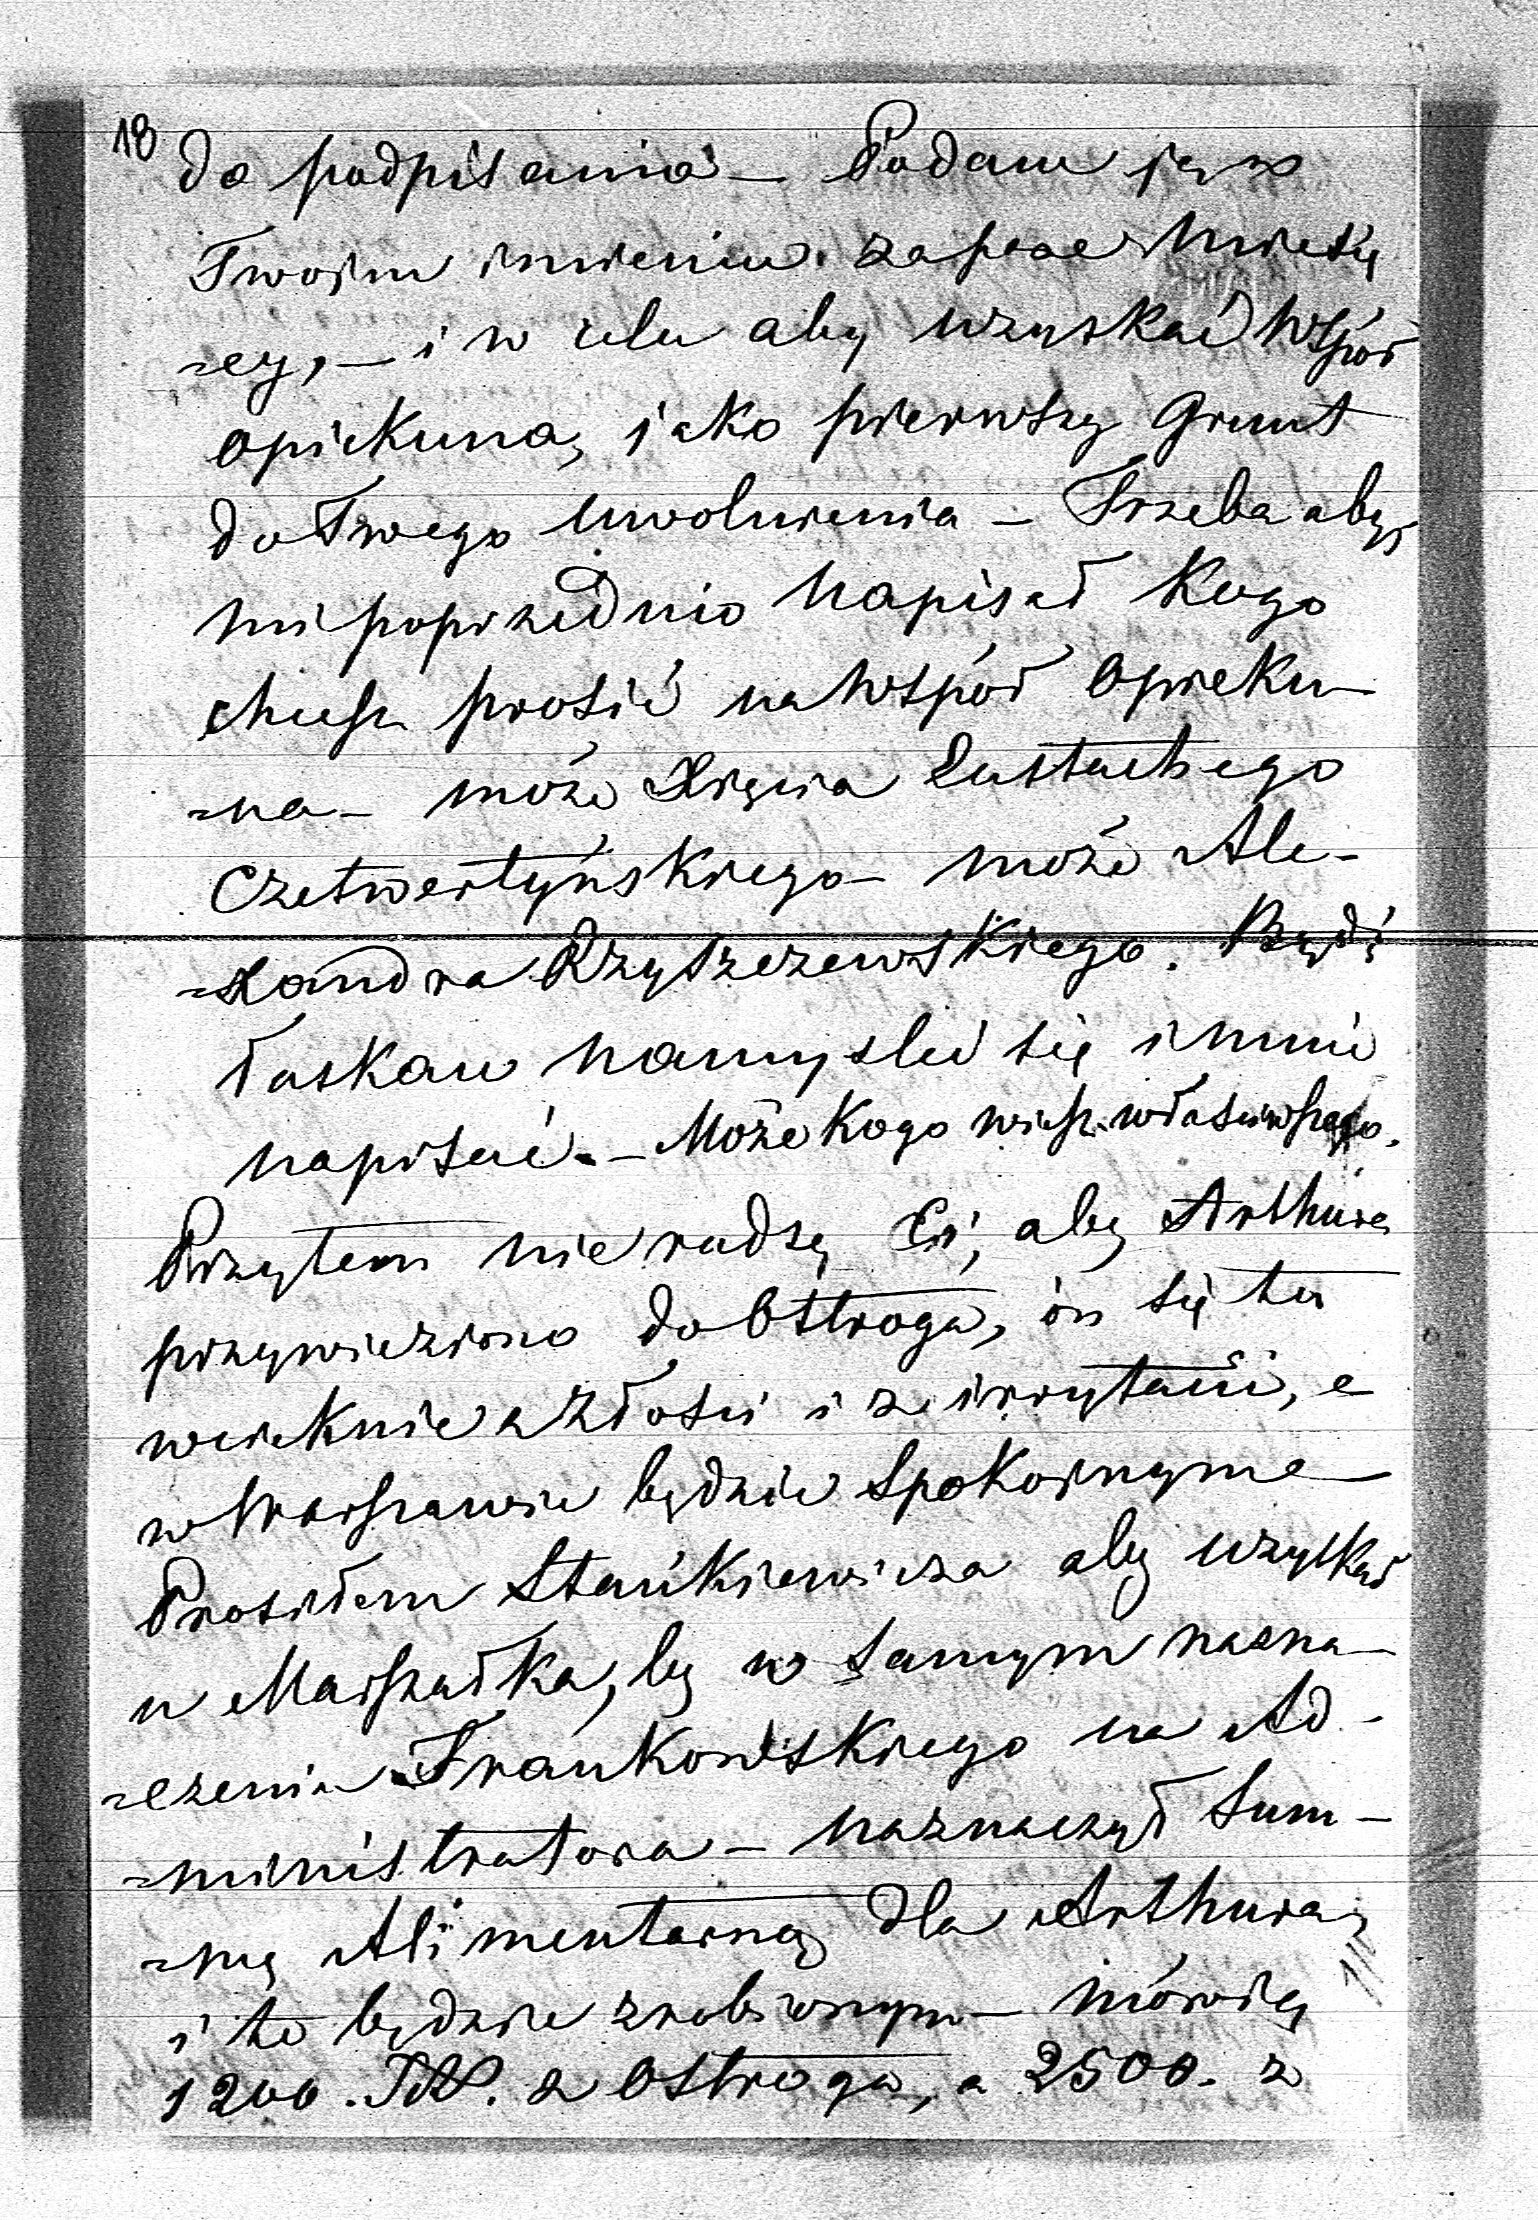 18
do podpisania – Podam ją w
Twoim imieniu
=cy, – i w celu aby uzyskać współ
opiekuna, jako pierwszy Grunt
do Twego uwolnienia – Trzeba abyś
mi poprzednio napisał Kogo
chcesz prosić na współ opieku–
=na – może Xięcia Eustachego
Czetwertyńskiego – może Ale–
=xandra Rzyszczewskiego. Bądź
łaskaw namyśleć się i mnie
napisać. – Może Kogo wiesz właściwszego.
Przytem nie radzę Ci, aby Arthura
przywieziono do Ostroga, on się tu
wścieknie z złości i z irrytacii, a
w Warszawie będzie Spokojnym –
Prosiłem Stańkiewicza aby uzyskał
u Marszałka, by w samym nazna–
=czeniu Frankowskiego na Ad–
=ministratora – naznaczył Sum–
=mę Alimentarną dla Arthura,
i to będzie zrobionym – mówią
1200. z Ostroga, a 2500. z